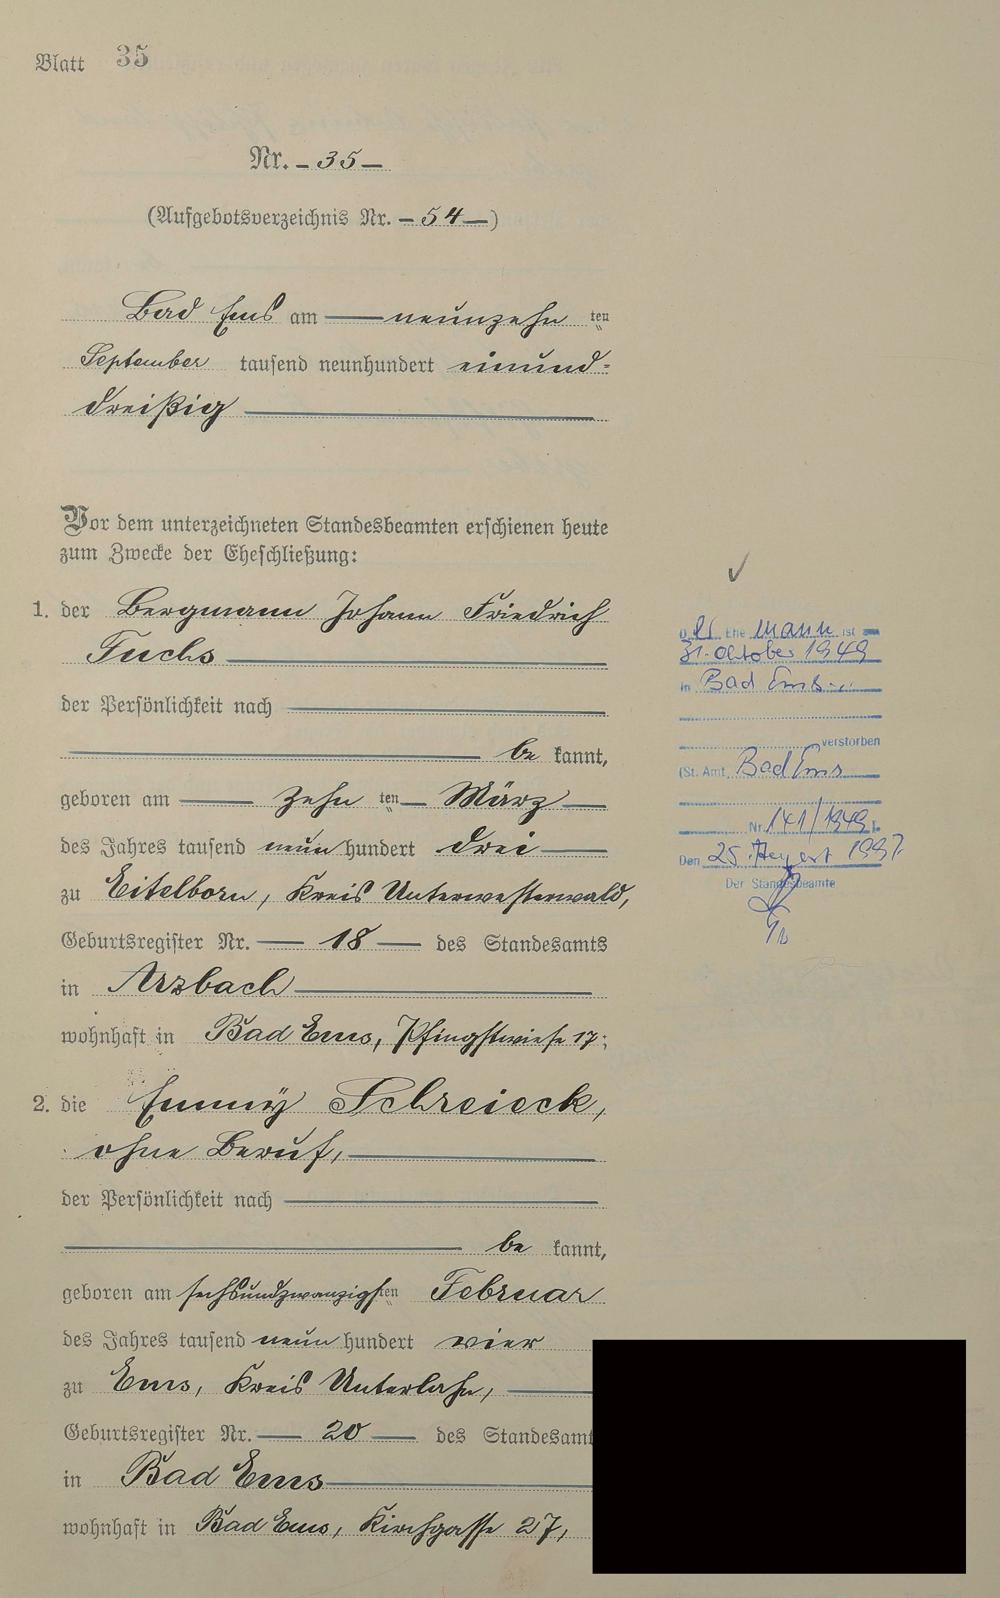 Blatt 35
Nr. 35
(Aufgebotsverzeichnis Nr. 54)
Bad Ems am neunzehn ten
September tausend neunhundert einund-
dreißig
Vor dem unterzeichneten Standesbeamten erschienen heute
zum Zwecke der Eheschließung:
1. der Bergmann Johann Friedrich
Fuchs
der Persönlichkeit nach
be kannt,
geboren am zehn ten März
des Jahres tausend neun hundert drei
zu Eitelborn, Kreis Unterwesterwald,
Geburtsregister Nr. 18 des Standesamts
in Arzbach
wohnhaft in Bad Ems, Pfingstwiese 17;
2. die Emmy Schreieck,
ohne Beruf,
der Persönlichkeit nach
be kannt,
geboren am sechsundzwanzigsten Februar
des Jahres tausend neun hundert vier
zu Ems, Kreis Unterlahn,
Geburtsregister Nr. 20 des Standesamt
in Bad Ems
wohnhaft in Bad Ems, Kirchgasse 27,
Der Ehe mann ist
31. Oktober 1949
in Bad Ems
verstorben
(St. Amt Bad Ems
Nr. 141/1949).
Den 25. August 1997
Der Standesbeamte